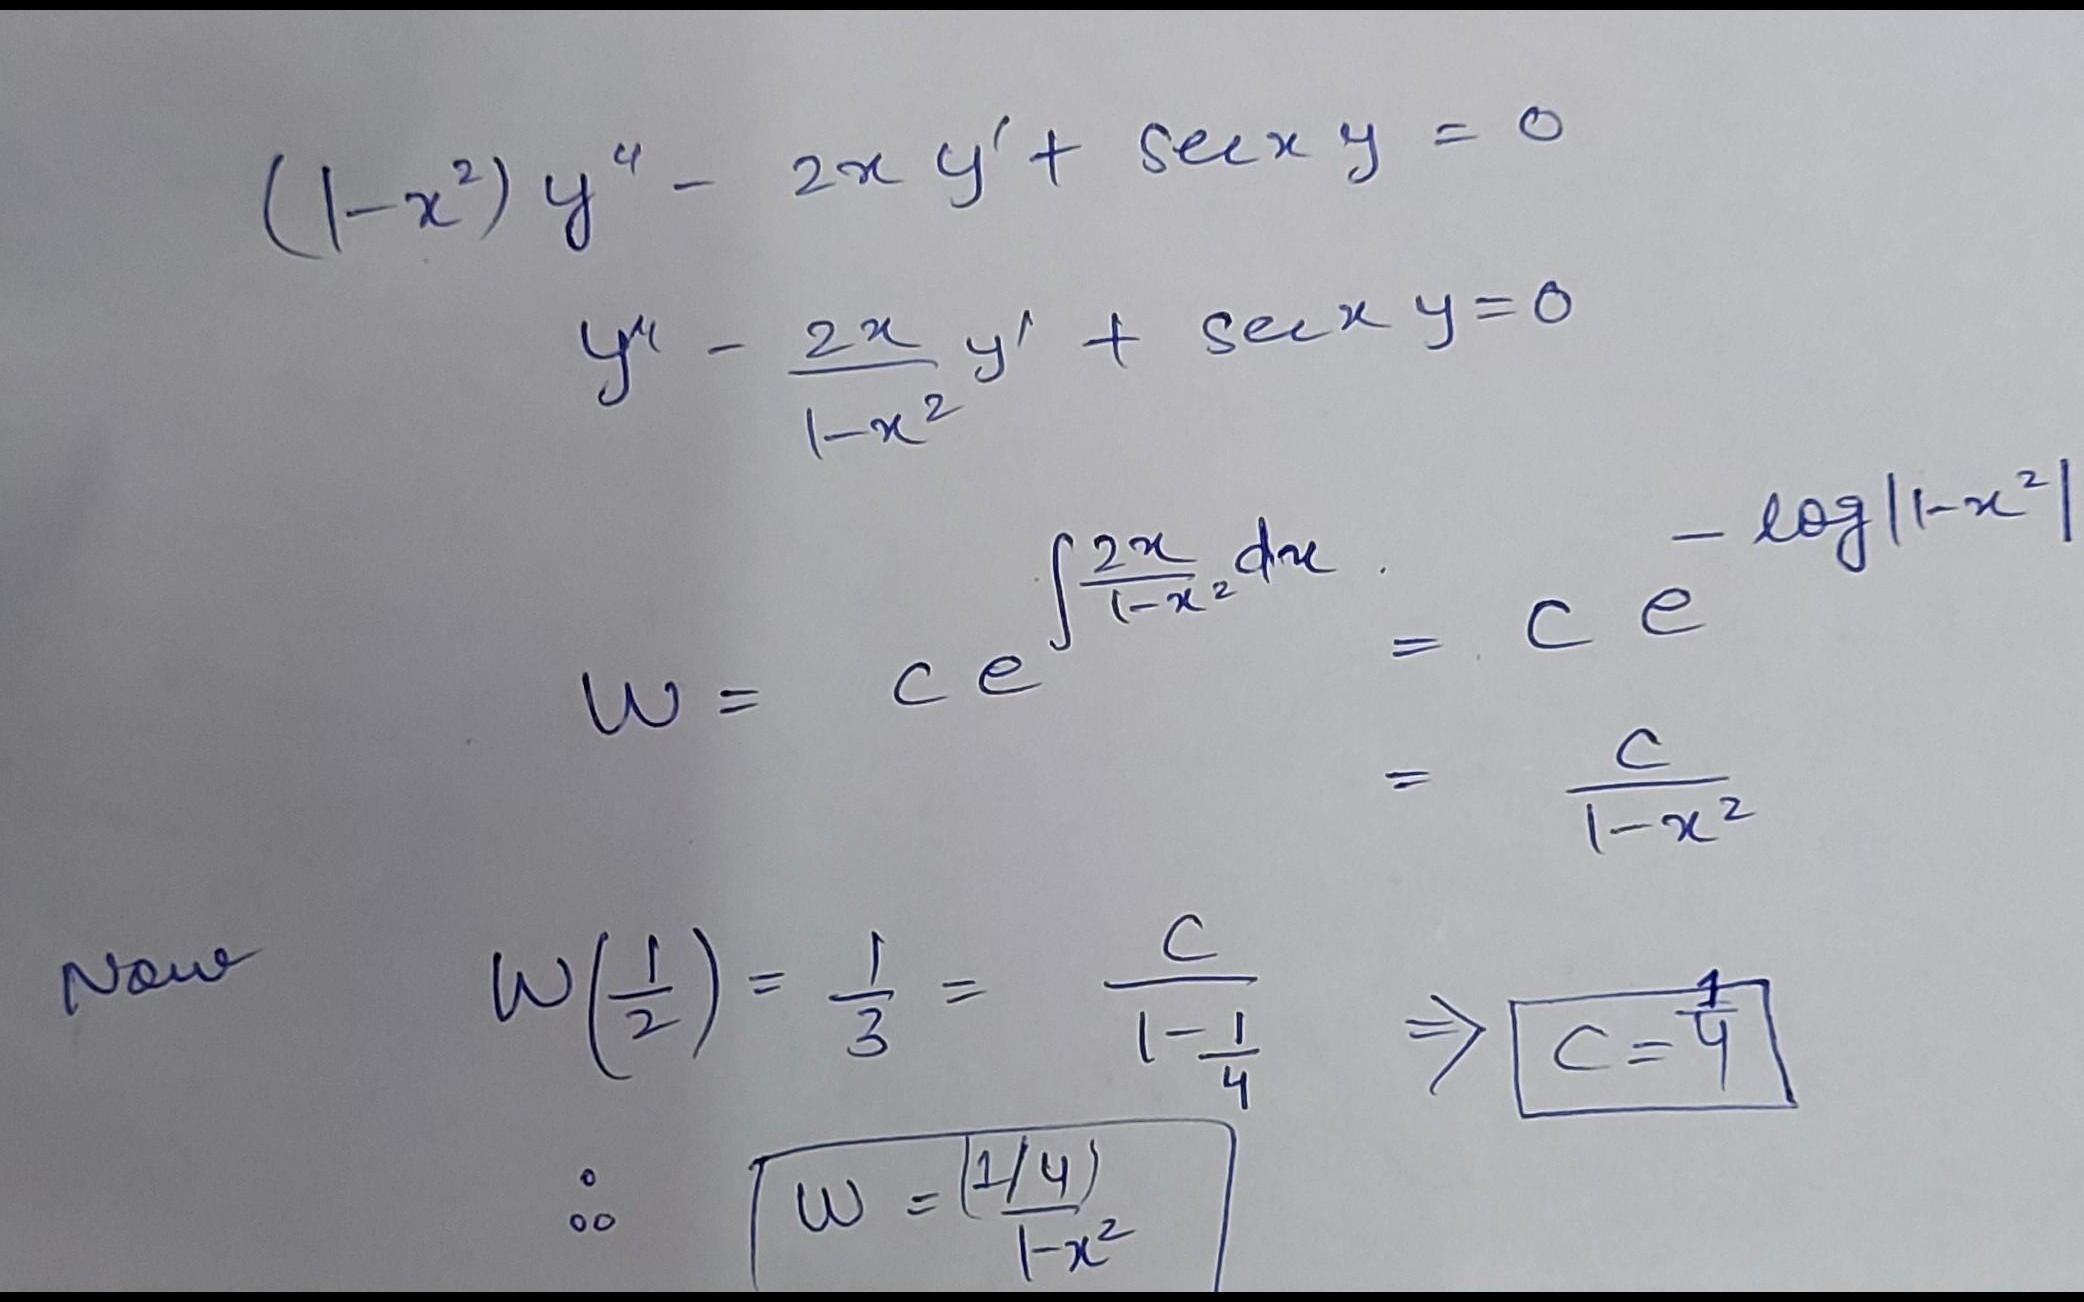 (1-x²) y'' - 2x y' + secx y = 0
y'' - 2x/(1-x²) y' + secx y = 0
W = c e^(∫ 2x/(1-x²) dx) = c e^(- log|1-x²|)
= c/(1-x²)
Now W(1/2) = 1/3 = c/(1 - 1/4) ⇒ c = 1/4
∴ W = (1/4)/(1-x²)